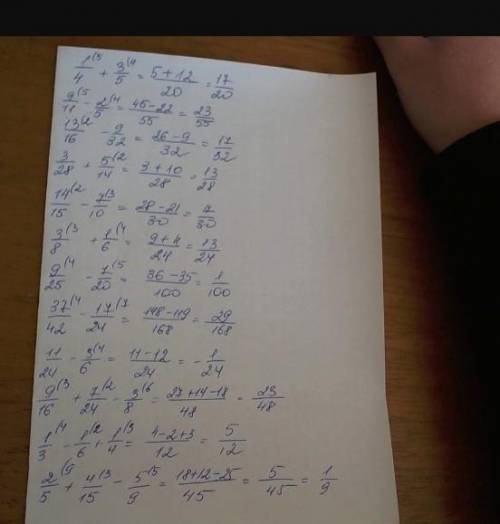 1/4 (5 + 3/5 (4 = 5+12/20 = 17/20
9/11 (5 - 2/5 (4 = 45-22/55 = 23/55
13/16 (2 - 9/32 = 26-9/32 = 17/32
3/28 + 5/14 (2 = 3+10/28 = 13/28
14/15 (2 - 7/10 (3 = 28-21/30 = 7/30
3/8 (3 + 1/6 (4 = 9+4/24 = 13/24
9/25 (4 - 7/20 (5 = 36-35/100 = 1/100
37/42 (4 - 17/24 (7 = 148-119/168 = 29/168
11/24 - 3/6 (4 = 11-12/24 = - 1/24
9/16 (3 + 7/24 (2 - 3/8 (6 = 27+14-18/48 = 23/48
1/3 (4 - 1/6 (2 + 1/4 (3 = 4-2+3/12 = 5/12
2/5 (9 + 4/15 (3 - 5/9 (5 = 18+12-25/45 = 5/45 = 1/9